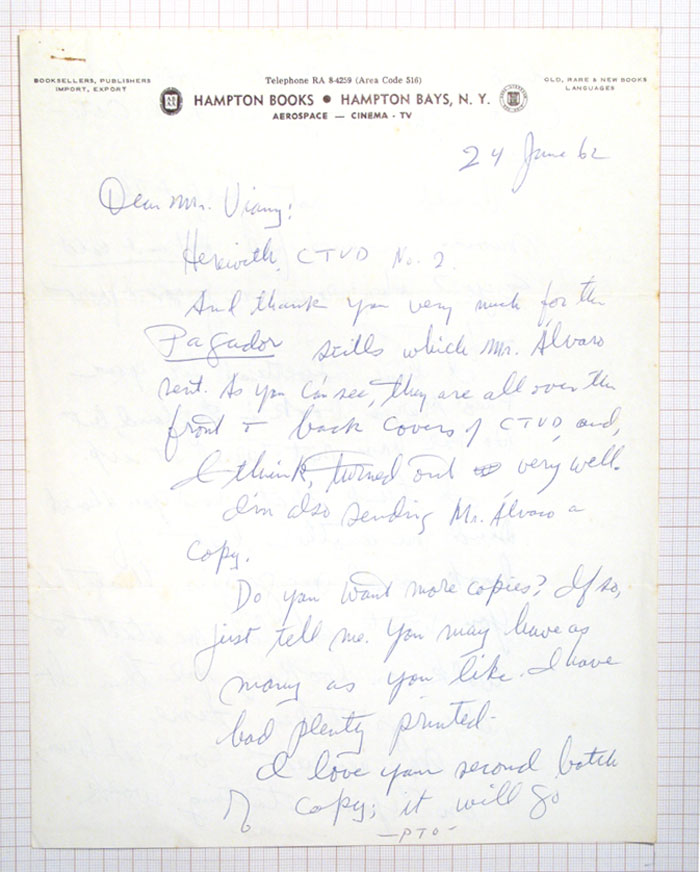 BOOKSELLERS, PUBLISHERS
IMPORT, EXPORT
Telephone RA 8-4259 (Area Code 516)
HAMPTON BOOKS • HAMPTON BAYS, N. Y.
AEROSPACE — CINEMA - TV
OLD, RARE & NEW BOOKS
LANGUAGES
24 June 62
Dear Mr. Viany:
Herewith CTVD No. 2.
And thank you very much for the
Pagador stills which Mr. Álvaro
sent. As you can see, they are all over the
front + back covers of CTVD and,
I think, turned out very well.
I'm also sending Mr. Álvaro a
copy.
Do you want more copies? If so,
just tell me. You may have as
many as you like. I have
had plenty printed.
I love your second batch
of copy; it will go
—PTO—